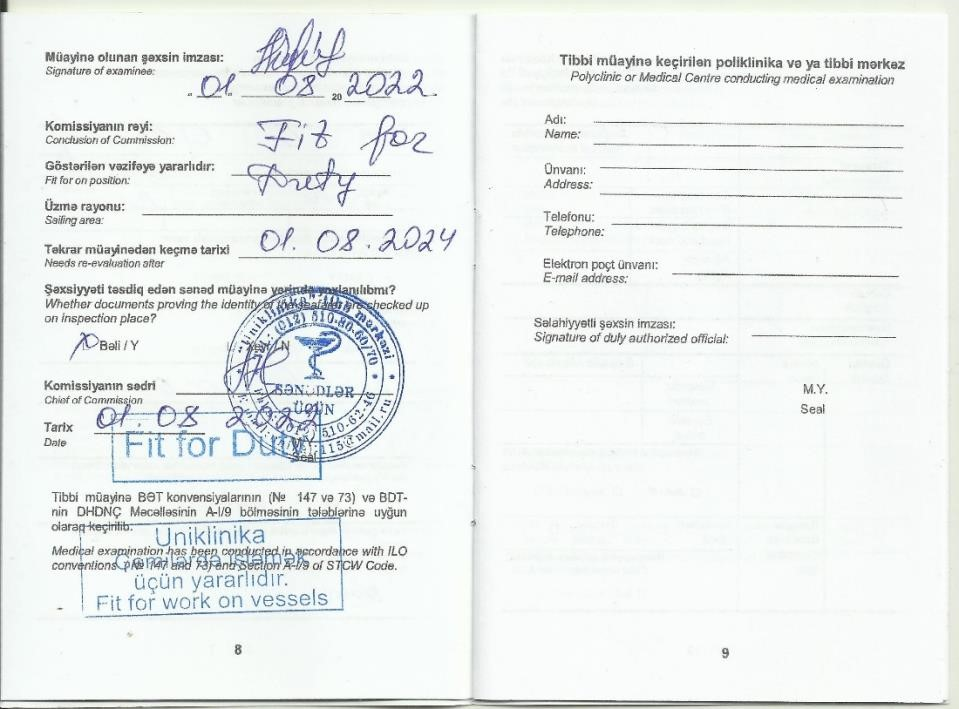 Müayinə olunan şəxsin imzası:
Signature of examinee:
"01" 08 20 2022.
Komissiyanın rəyi: Fit for
Conclusion of Commission:
Göstərilən vəzifəyə yararlıdır: Duty
Fit for on position:
Üzmə rayonu:
Sailing area:
Təkrar müayinədən keçmə tarixi 01.08.2024
Needs re-evaluation after
Şəxsiyyəti təsdiq edən sənəd müayinə yerində yoxlanılıbmı?
Whether documents proving the identity of the seafarer are checked up
on inspection place?
Bəli / Y Xeyr / N
Komissiyanın sədri
Chief of Commission
Tarix 01.08
Date
"Uniklinika" tibb mərkəzi
(012) 510-80-60/70
SƏNƏDLƏR
ÜÇÜN
510-62-46
115@mail.ru
Seal
Fit for Duty
Tibbi müayinə BƏT konvensiyalarının (№ 147 və 73) və BDT-
nin DHDNÇ Məcəlləsinin A-I/9 bölməsinin tələblərinə uyğun
olaraq keçirilib.
Medical examination has been conducted in accordance with ILO
conventions (№ 147 and 73) and Section A-I/9 of STCW Code.
Uniklinika
Gəmilərdə işləmək
üçün yararlıdır.
Fit for work on vessels
8
Tibbi müayinə keçirilən poliklinika və ya tibbi mərkəz
Polyclinic or Medical Centre conducting medical examination
Adı:
Name:
Ünvanı:
Address:
Telefonu:
Telephone:
Elektron poçt ünvanı:
E-mail address:
Səlahiyyətli şəxsin imzası:
Signature of duly authorized official:
M.Y.
Seal
9